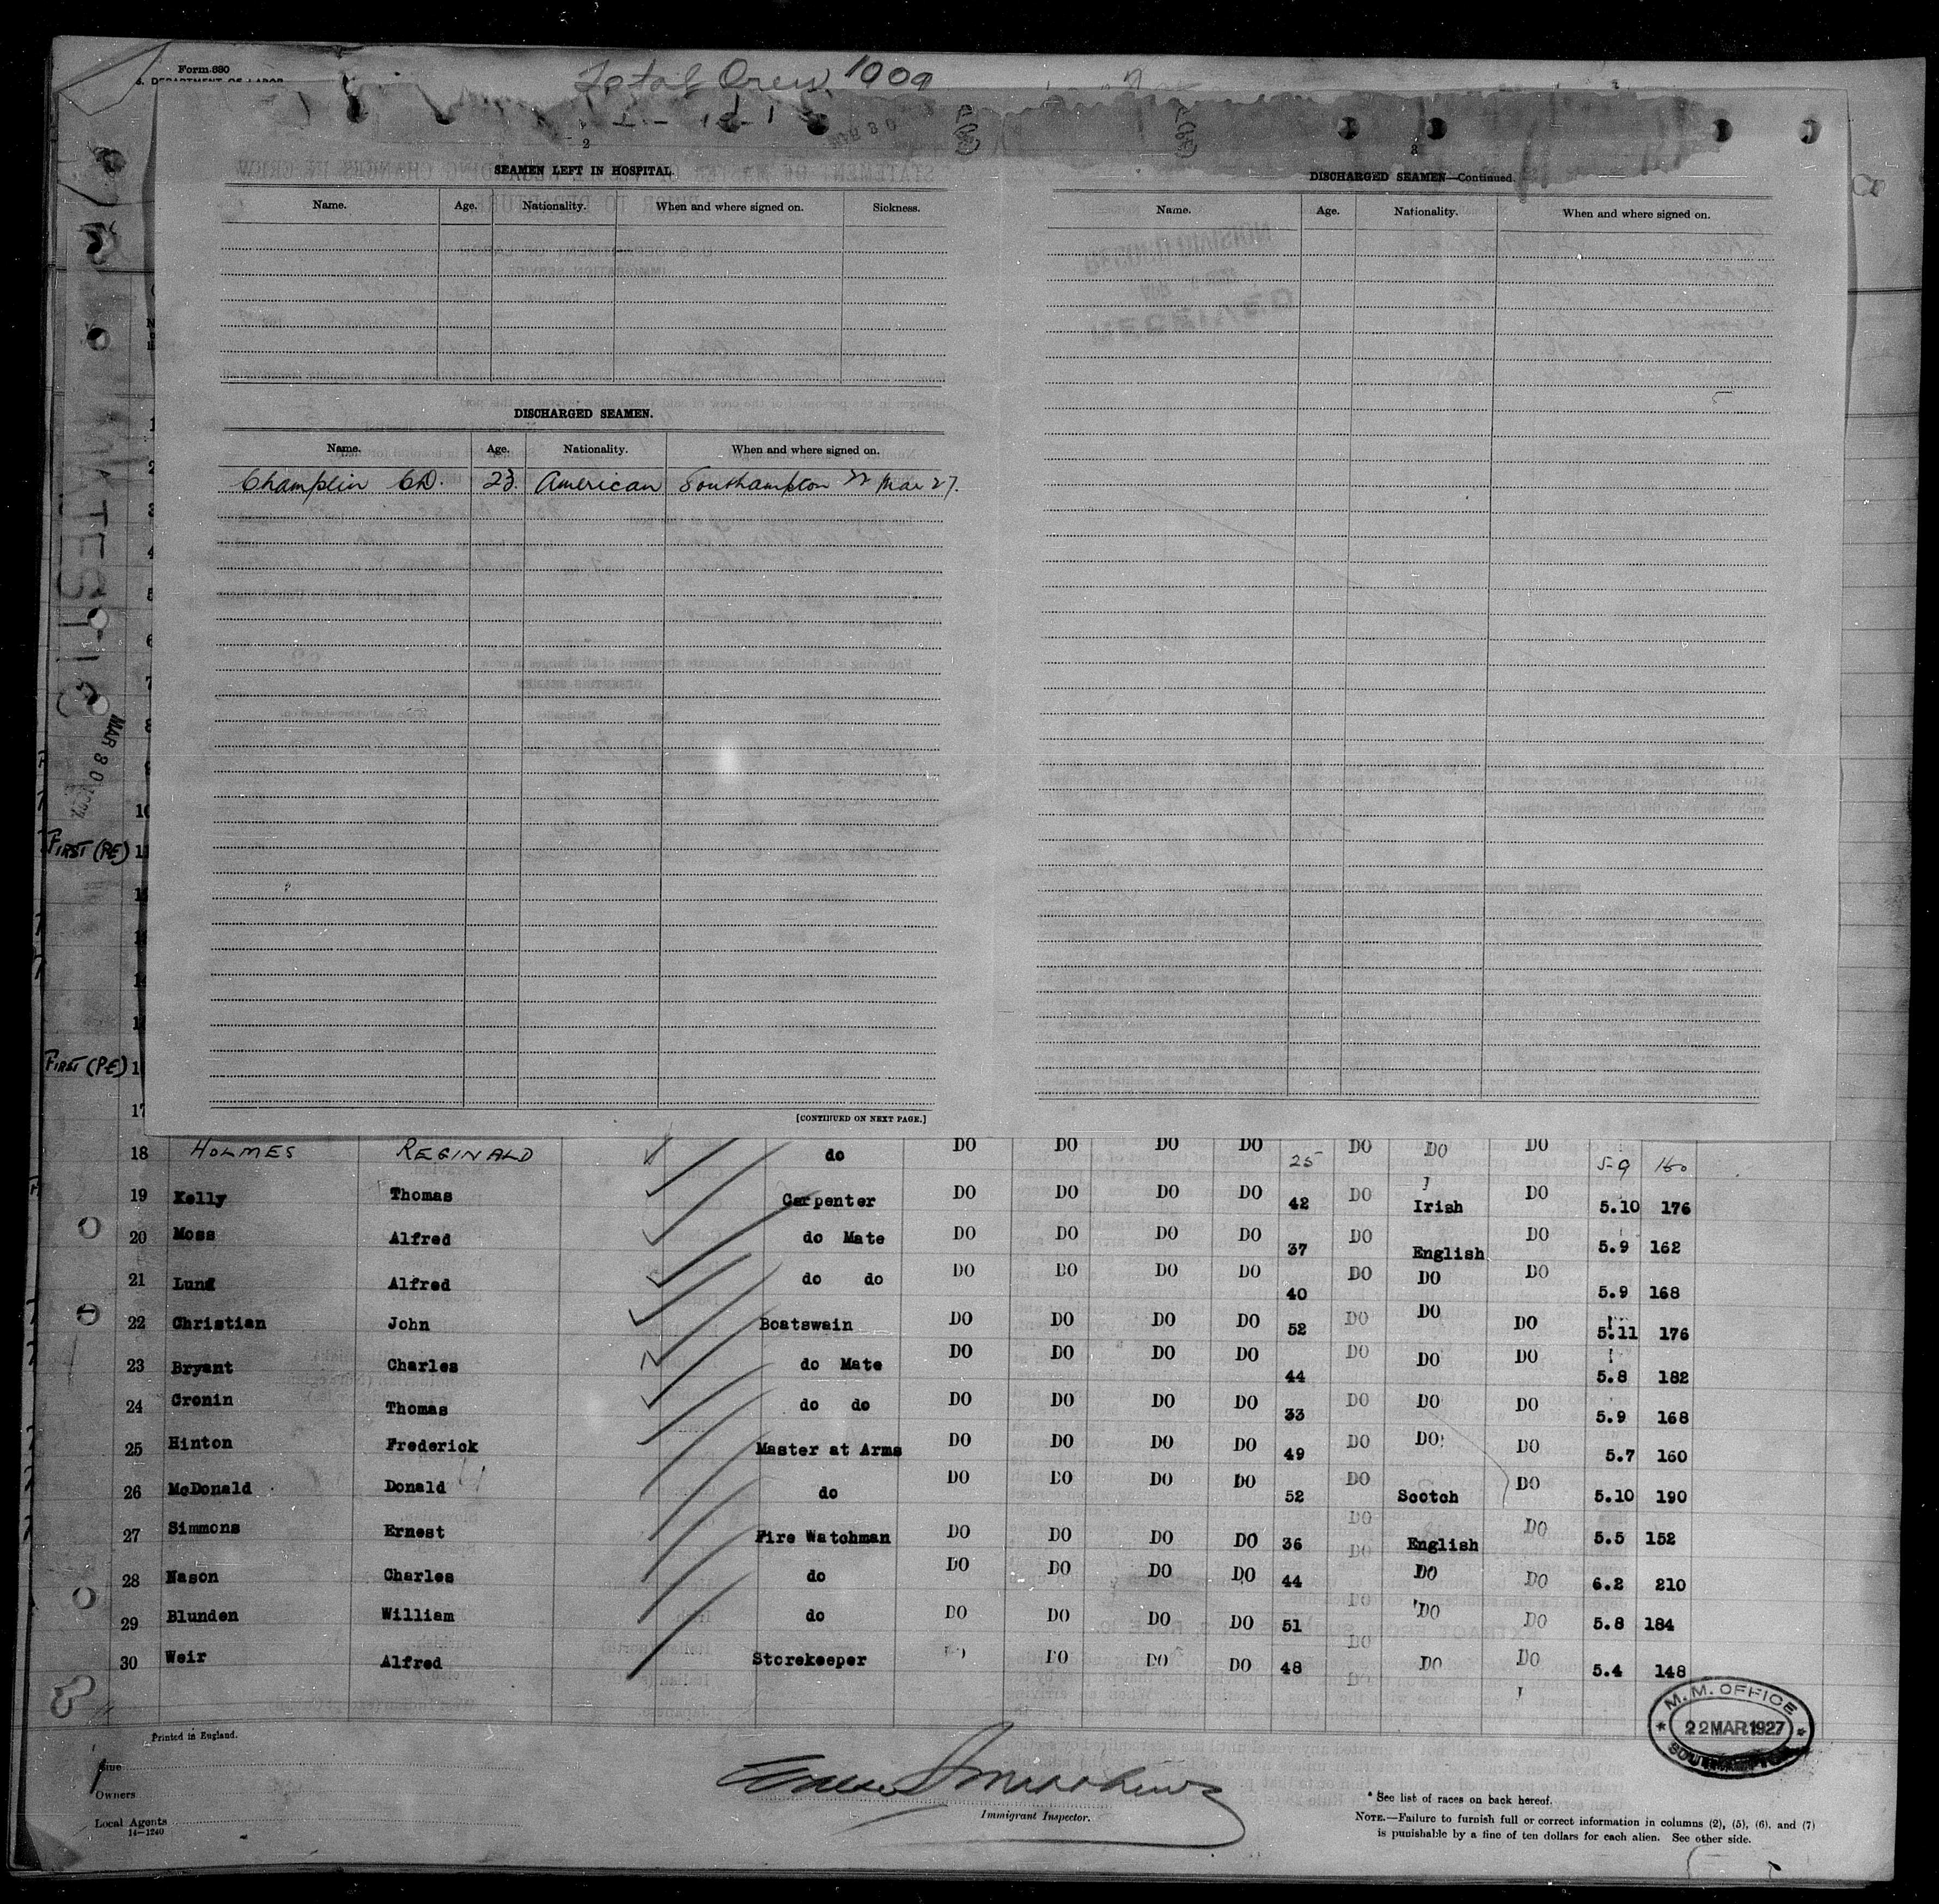 Form 680
S. DEPARTMENT OF LABOR
Total Crew 1009
2
SEAMEN LEFT IN HOSPITAL.
Name. Age. Nationality. When and where signed on. Sickness.
DISCHARGED SEAMEN.
Name. Age. Nationality. When and where signed on.
Champlin CD. 23. American Southampton 22 Mar 27.
[CONTINUED ON NEXT PAGE.]
3
DISCHARGED SEAMEN—Continued.
Name. Age. Nationality. When and where signed on.
MAJESTIC
MAR 30 1927
FIRST (PE) 11
FIRST (PE) 1
17
18 HOLMES REGINALD do DO DO DO DO 25 DO DO DO 5-9 160
19 Kelly Thomas Carpenter DO DO DO DO 42 DO Irish DO 5.10 176
20 Moss Alfred do Mate DO DO DO DO 37 DO English DO 5.9 162
21 Lung Alfred do do DO DO DO DO 40 DO DO DO 5.9 168
22 Christian John Boatswain DO DO DO DO 52 DO DO DO 5.11 176
23 Bryant Charles do Mate DO DO DO DO 44 DO DO DO 5.8 182
24 Cronin Thomas do do DO DO DO DO 33 DO DO DO 5.9 168
25 Hinton Frederick Master at Arms DO DO DO DO 49 DO DO DO 5.7 160
26 McDonald Donald do DO DO DO DO 52 DO Scotch DO 5.10 190
27 Simmons Ernest Fire Watchman DO DO DO DO 36 DO English DO 5.5 152
28 Nason Charles do DO DO DO DO 44 DO DO DO 6.2 210
29 Blunden William do DO DO DO DO 51 DO DO DO 5.8 184
30 Weir Alfred Storekeeper DO DO DO DO 48 DO DO DO 5.4 148
M. M. OFFICE
22 MAR 1927
SOUTHAMPTON
Printed in England.
Line
Owners
Local Agents
14—1240
Immigrant Inspector.
* See list of races on back hereof.
NOTE.—Failure to furnish full or correct information in columns (2), (5), (6), and (7)
is punishable by a fine of ten dollars for each alien. See other side.